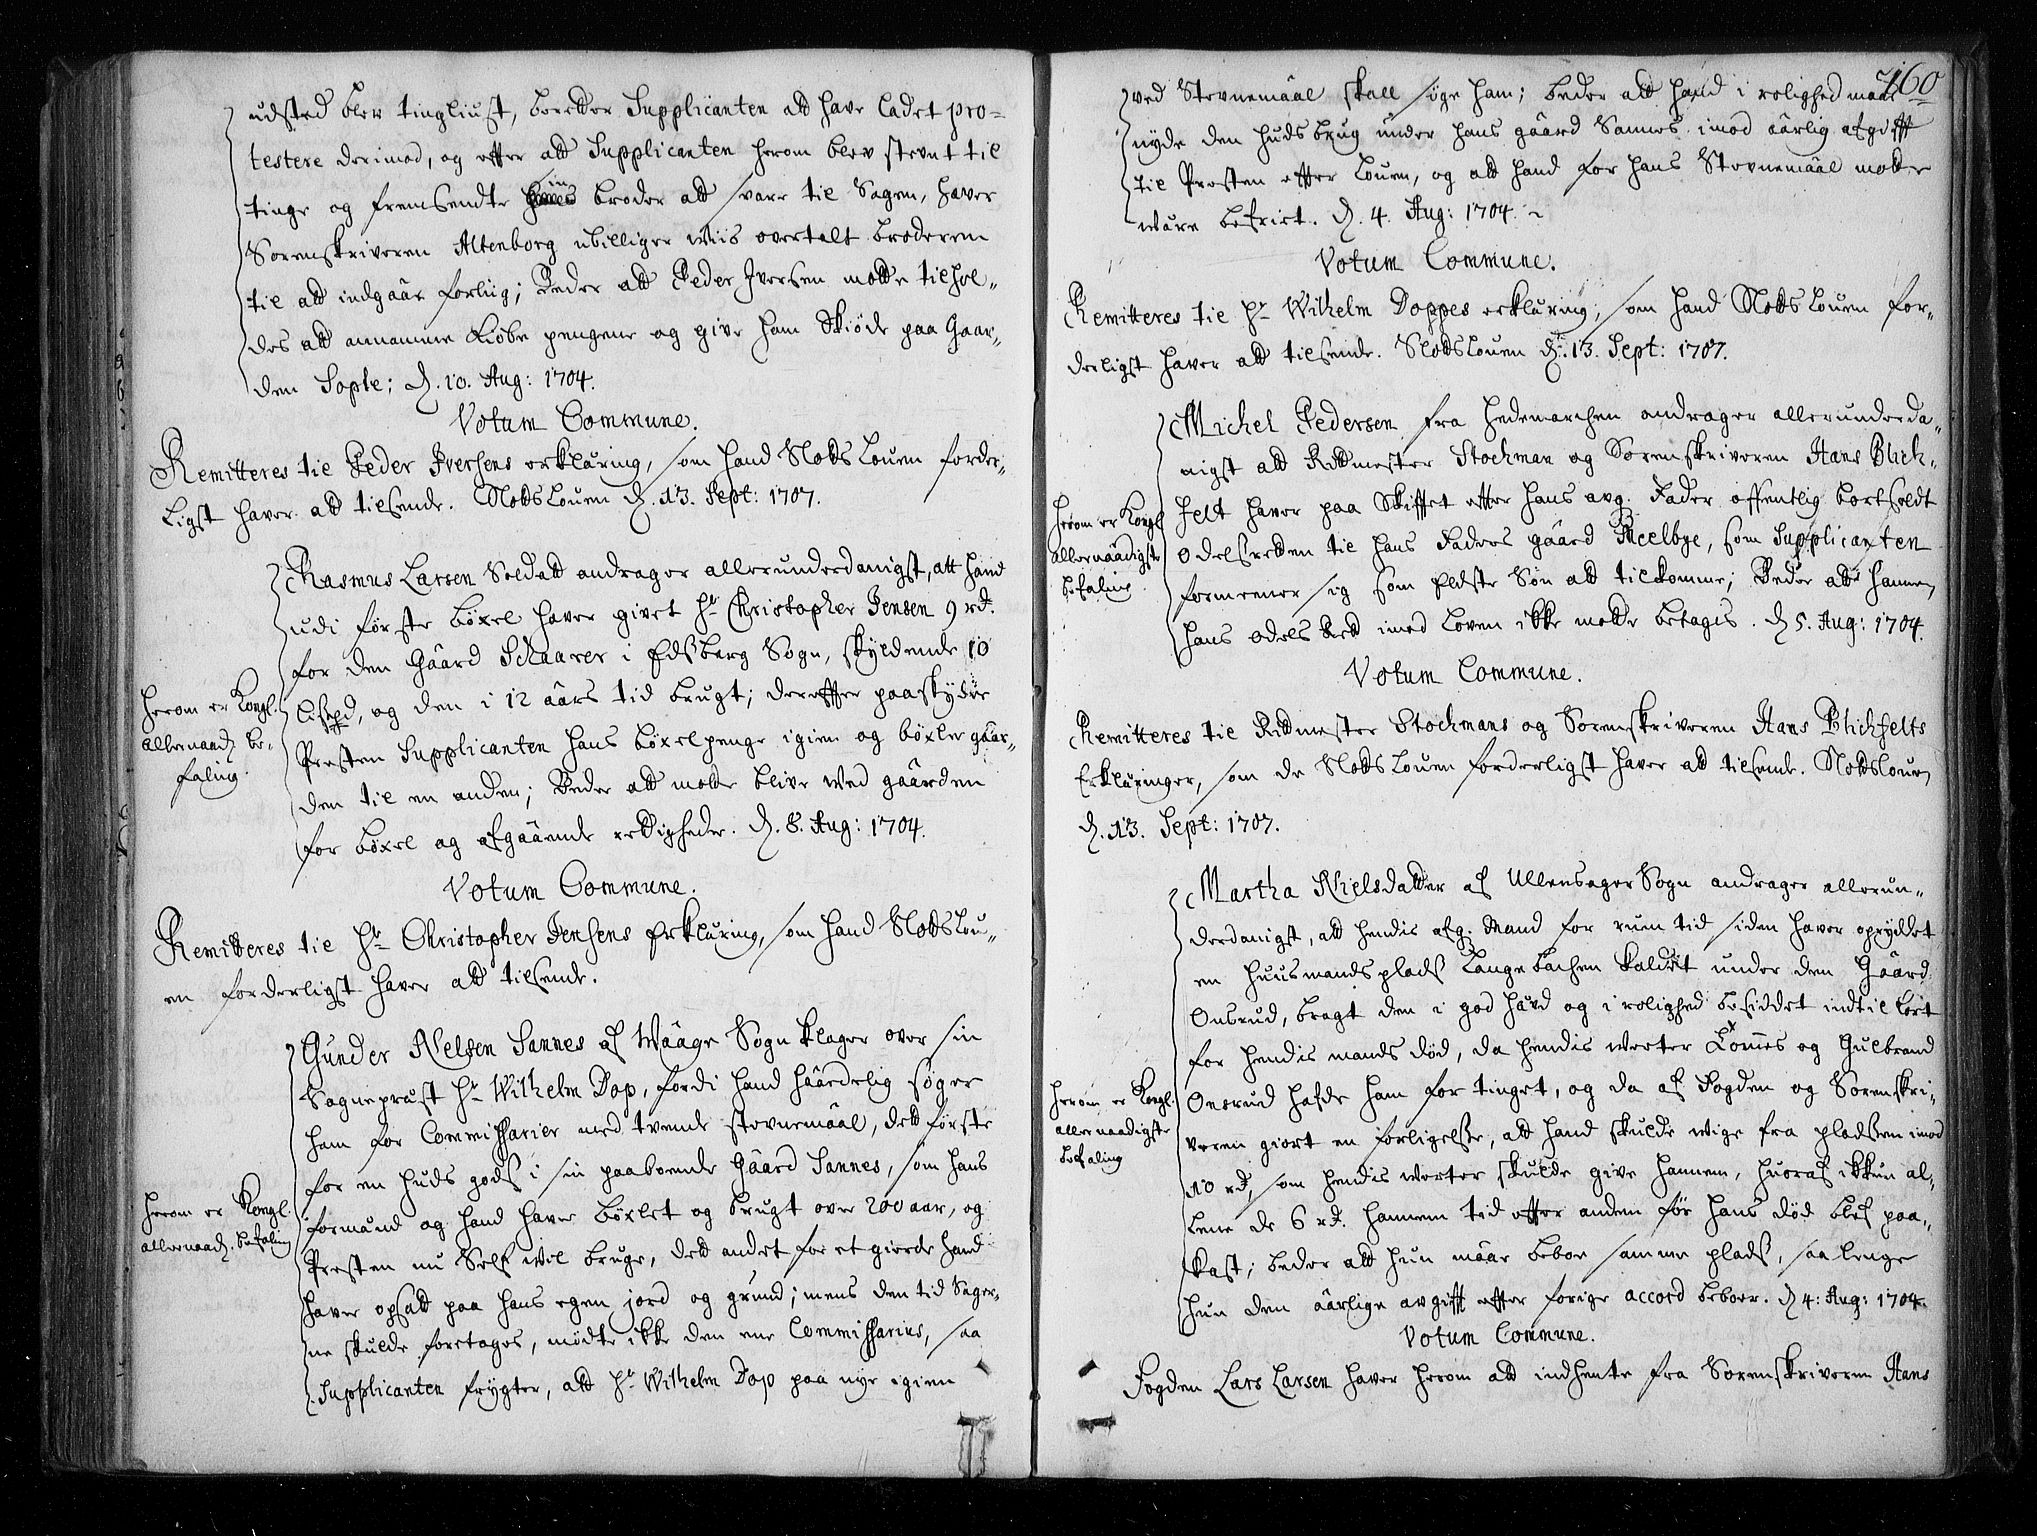 udsted blev tingliust, beretter Supplicanten att have ladet pro-
testere derimod, og efter att Supplicanten herom blev stevnt til
tinge og fremsendte sin broder att svare til Sagen, haver
Sorenskriveren Altenborg ubilliger wiis overtalt broderen
til att indgaar forliig; Beder att Peder Iversen motte tilhol-
des att annamme Kiøbe pengene og give ham Skiøde paa Gaar-
den Sople; d. 10. Aug: 1704.
Votum Commune.
Remitteres til Peder Iversens erkläring, som hand Slots Louen forder-
Ligst haver att tilsende. Slotslouen d. 13. Sept: 1707.
Rasmus Larsen Soldatt andrager allerunderdanigst, att hand
udi første böxel haver givet Hr. Christopher Jensen 9 rd.
for den Gaard Skaarer i Edsberg Sogn, skyldende 10
Lispd, og den i 12 aars tid brugt; derefter paaskyder
Presten Supplicanten hans böxelpenge igien og böxler gaar-
den til en anden; Beder att motte blive wed gaarden
for böxel og afgaaende rettigheder. d. 8. Aug: 1704.
Herom er Kongl.
allernaad. be-
faling.
Votum Commune.
Remitteres til Hr. Christopher Jensens Erkläring, som hand Slotslou-
en forderligst haver att tilsende.
Gunder Nelsen Sannes af Waage Sogn klager over sin
Sogneprest Hr. Wilhelm Dop, fordi hand haardelig søger
ham for Commissarier med tvende stevnemaal, dett første
for en huds gods i sin paaboende Gaard Sannes, som hans
formand og hand haver böxlet og brugt over 200 aar, og
Presten nu Self wil bruge, dett andet for et gierde hand
haver opsatt paa hans egen jord og grund; mens den tid Sager-
ne skulde foretages, mødte ikke den ene Commissarius, saa
Supplicanten frygter, att Hr. Wilhelm Dop paa nye igien
Herom er Kongl.
allernaad. befaling
760
ved Stevnemaal skall søge ham; beder att hand i rolighed maae
nyde den huds brug under hans gaard Sannes imod aarlig afgifft
til Presten efter Louen, og att hand for hans Stevnemaal motte
wäre befriet. d. 4. Aug: 1704.
Votum Commune.
Remitteres til Hr. Wilhelm Doppes erkläring, som hand Slots Louen for-
derligst haver att tilsende. Slotslouen d. 13. Sept: 1707.
Michel Pedersen fra Hedemarchen andrager allerunderda-
nigst att Ritmester Stochman og Sorenskriveren Hans Blich-
felt haver paa Skifftet efter hans avg. Fader offentlig bortsoldt
Odelsretten til hans Faders gaard Meelbye, som Supplicanten
formeener sig som Eldste Søn att tilkomme; Beder att hannem
hans odels Rett imod Loven ikke motte betages. d. 5. Aug: 1704.
Herom er Kongl.
allernaadigste
befaling.
Votum Commune.
Remitteres til Ritmester Stochmans og Sorenskriveren Hans Blichfelts
Erkläringer, som de Slots Louen forderligst haver att tilsende. Slotslouen
d. 13. Sept: 1707.
Martha Nielsdatter af Ullensager Sogn andrager allerun-
derdanigst, att hendis afg. Mand for rum tid siden haver opryddet
en huusmandsplads Langebachen kaldet under den Gaard
Onsrud, bragt den i god häfd og i rolighed besiddet indtil kort
for hendis mands død, da hendis werter Lomes og Gulbrand
Onsrud hafde ham for tinget, og da af Fogden og Sorenskri-
veren giort en forligelse, att hand skulde wige fra pladsen imod
10 rd, som hendis werter skulde give hannem, huoraf ikkun al-
Lene de 6 rd. hannem tid efter anden før hans død blef paa-
kast; beder att hun maae beboe samme plads, saa lenge
hun den aarlige avgifft efter forige accord beboer. d. 4: Aug: 1704.
Herom er Kongl.
allernaadigste
befaling
Votum Commune.
Fogden Lars Larsen haver herom att indhente fra Sorenskriveren Hans